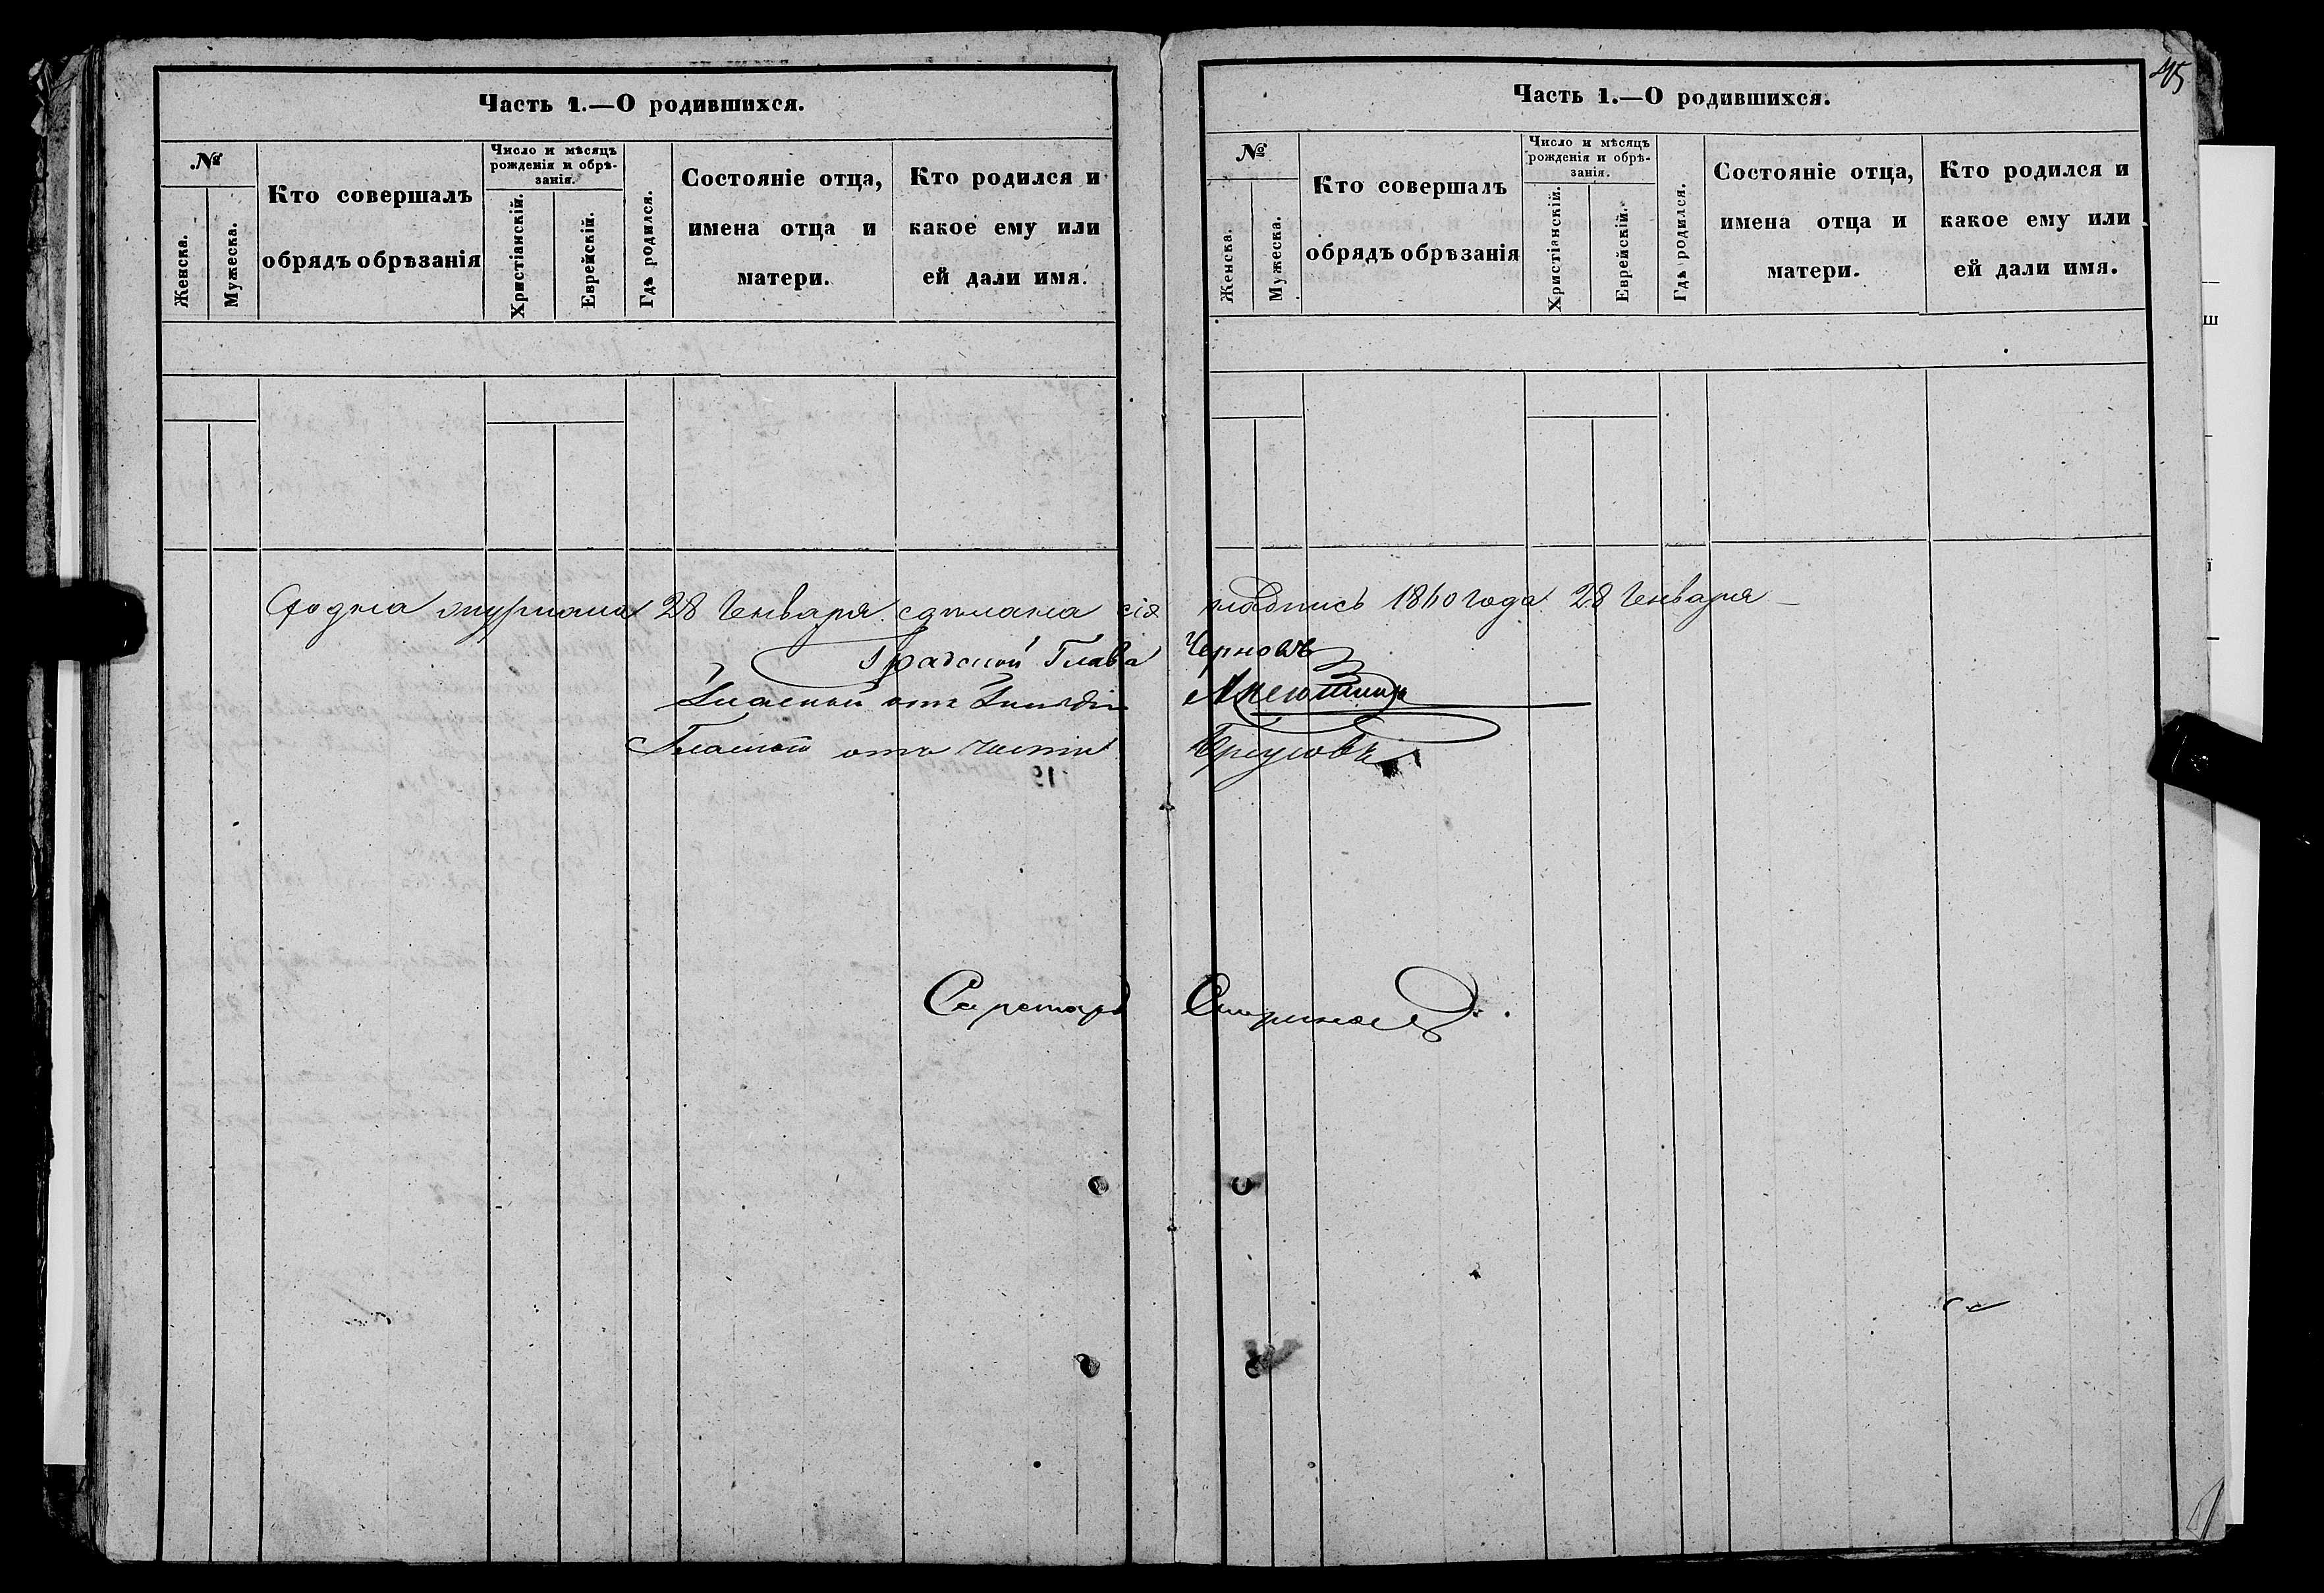 Часть 1.—О родившихся.
№
Женска.
Мужеска.
Кто совершалъ
обрядъ обрѣзанія
Число и мѣсяцъ
рожденія и обрѣ-
занія.
Христіанскій.
Еврейскій.
Гдѣ родился.
Состояніе отца,
имена отца и
матери.
Кто родился и
какое ему или
ей дали имя.
Часть 1.—О родившихся.
45
№
Женска.
Мужеска.
Кто совершалъ
обрядъ обрѣзанія
Число и мѣсяцъ
рожденія и обрѣ-
занія.
Христіанскій.
Еврейскій.
Гдѣ родился.
Состояніе отца,
имена отца и
матери.
Кто родился и
какое ему или
ей дали имя.
журнала 28 Генваря сдѣлана сія подпись 1860 года 28 Генваря
Градской Глава Черновъ
Гласный отъ
Гласный отъ части
Секретарь